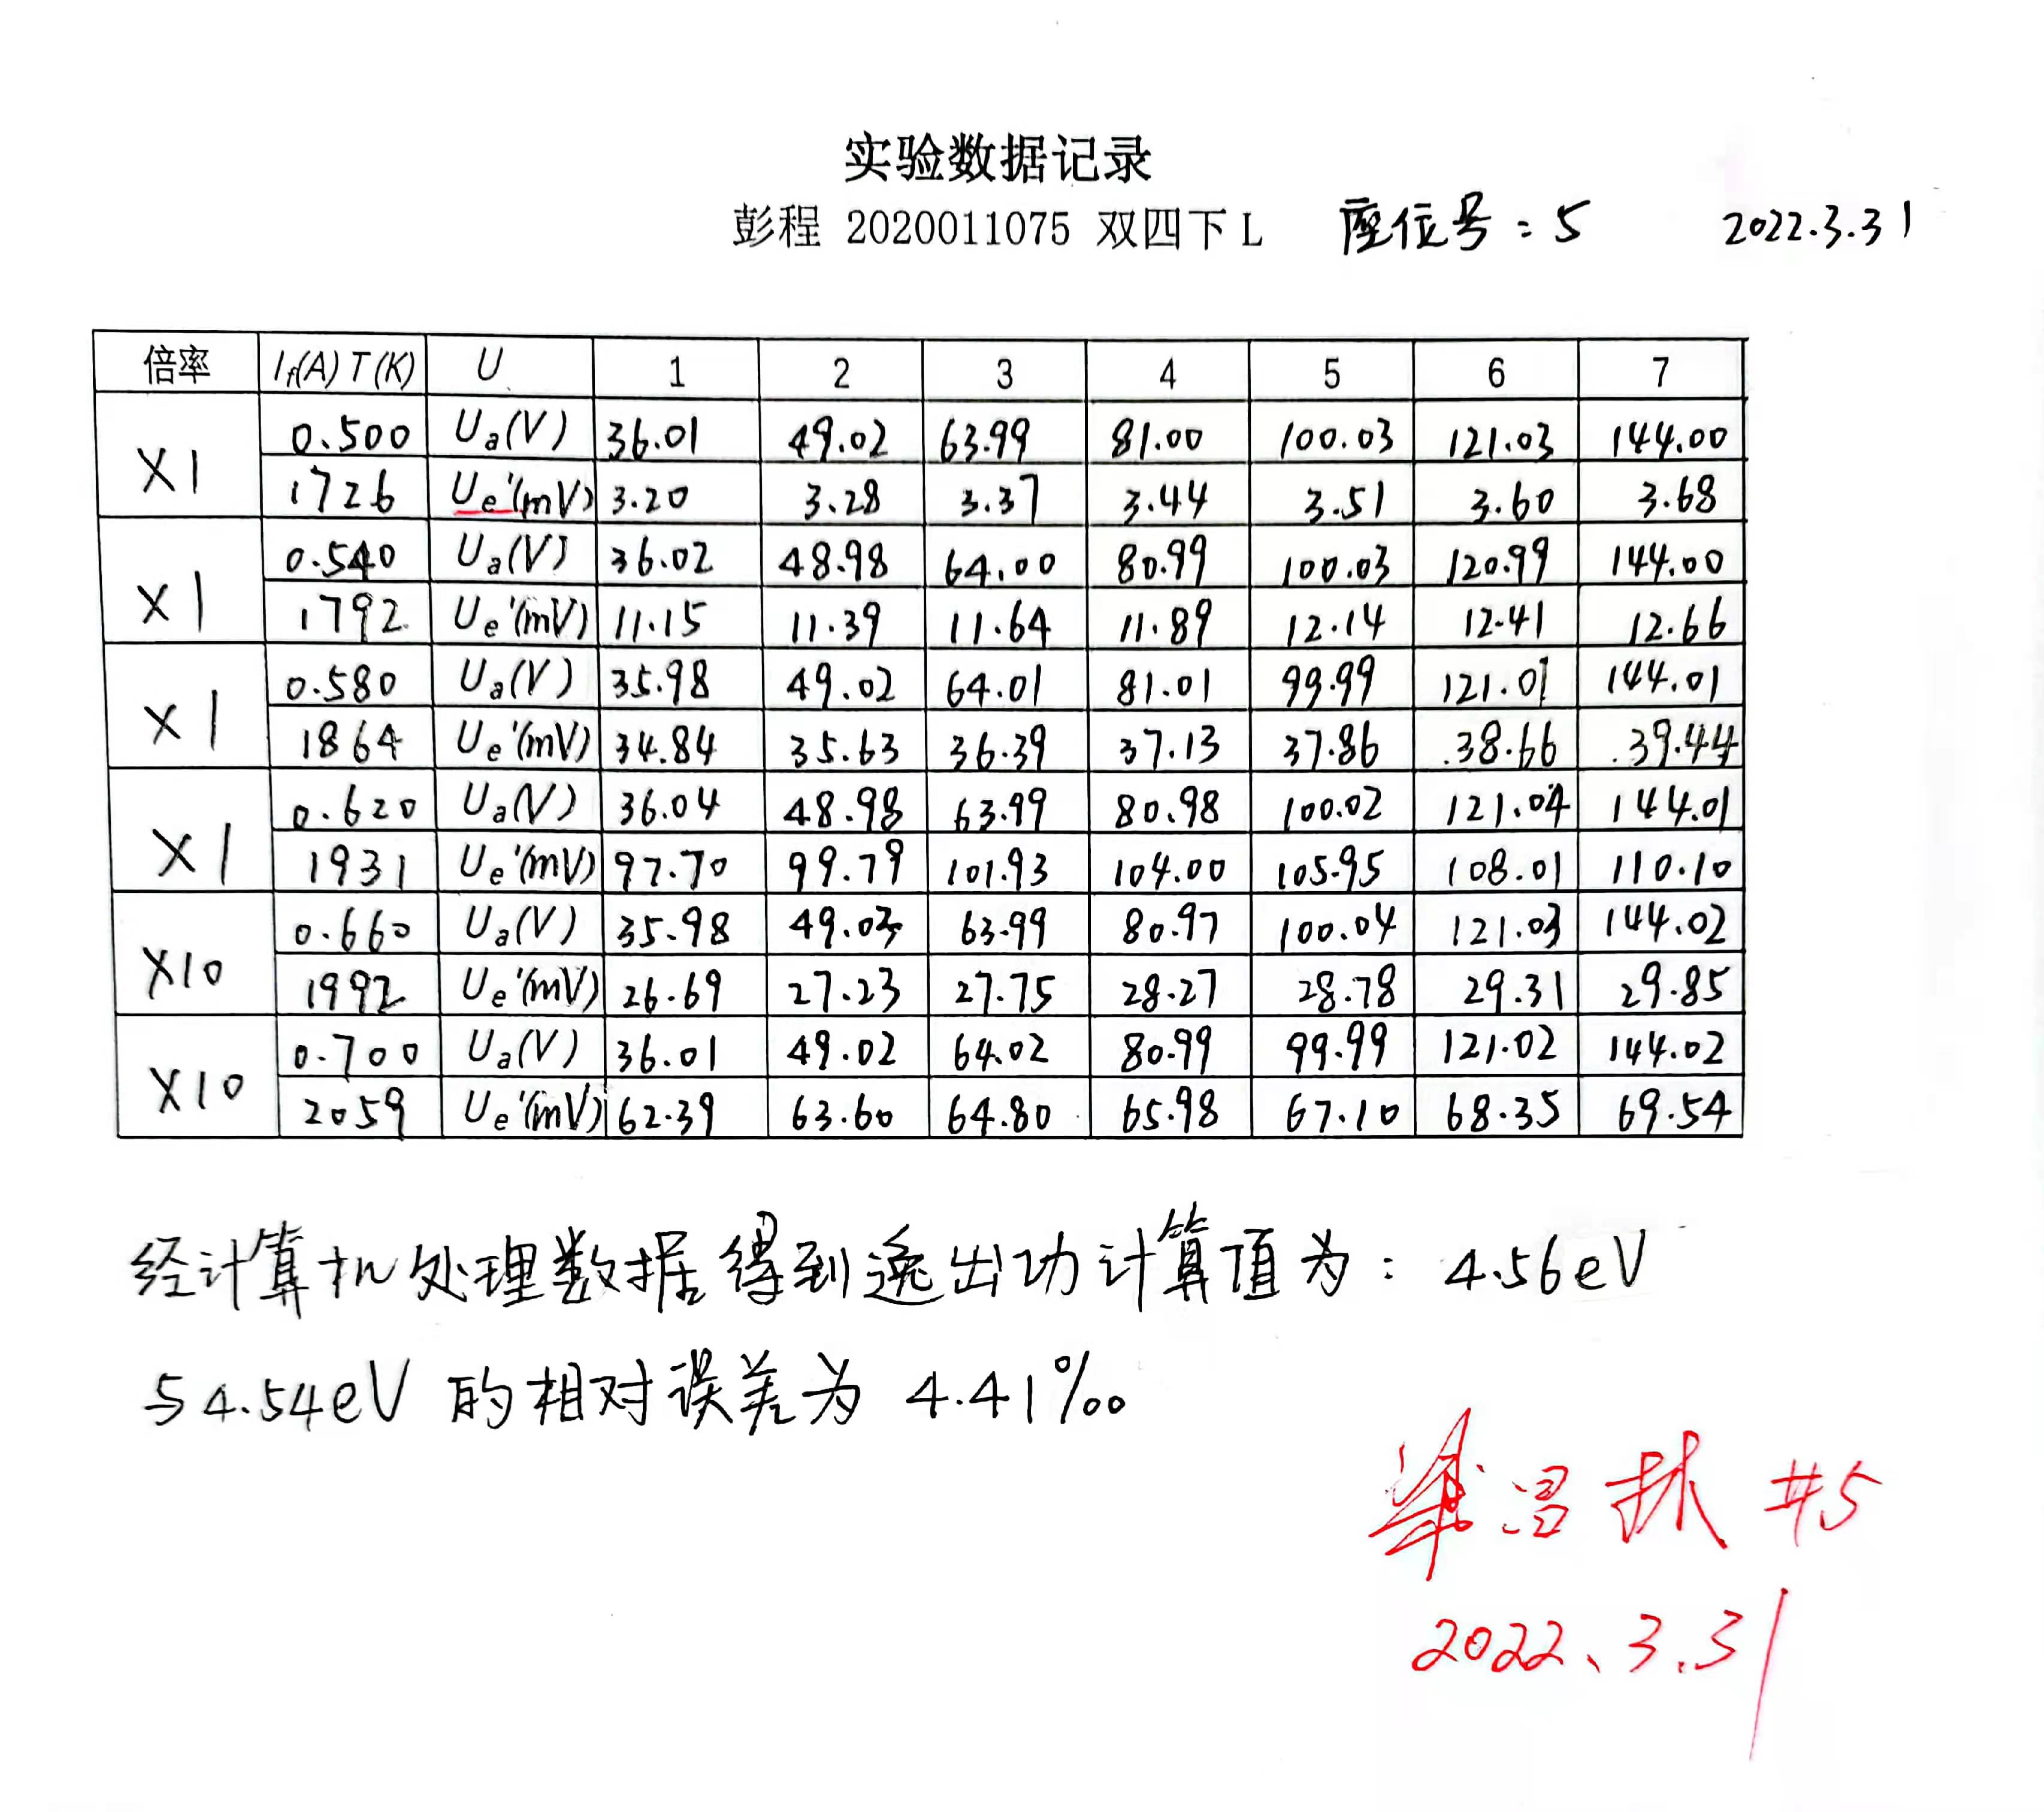 实验数据记录
彭程 2020011075 双四下 L 座位号：5 2022.3.31
倍率 I_f(A) T(K) U 1 2 3 4 5 6 7
X1 0.500 Ua(V) 36.01 49.02 63.99 81.00 100.03 121.03 144.00
1726 Ue'(mV) 3.20 3.28 3.37 3.44 3.51 3.60 3.68
X1 0.540 Ua(V) 36.02 48.98 64.00 80.99 100.03 120.99 144.00
1792 Ue'(mV) 11.15 11.39 11.64 11.89 12.14 12.41 12.66
X1 0.580 Ua(V) 35.98 49.02 64.01 81.01 99.99 121.01 144.01
1864 Ue'(mV) 34.84 35.63 36.39 37.13 37.86 38.66 39.44
X1 0.620 Ua(V) 36.04 48.98 63.99 80.98 100.02 121.04 144.01
1931 Ue'(mV) 97.70 99.79 101.93 104.00 105.95 108.01 110.10
X10 0.660 Ua(V) 35.98 49.03 63.99 80.97 100.04 121.03 144.02
1992 Ue'(mV) 26.69 27.23 27.75 28.27 28.78 29.31 29.85
X10 0.700 Ua(V) 36.01 49.02 64.02 80.99 99.99 121.02 144.02
2059 Ue'(mV) 62.39 63.60 64.80 65.98 67.10 68.35 69.54
经计算机处理数据得到逸出功计算值为：4.56eV
与4.54eV 的相对误差为 4.41‰
#5
2022、3.31